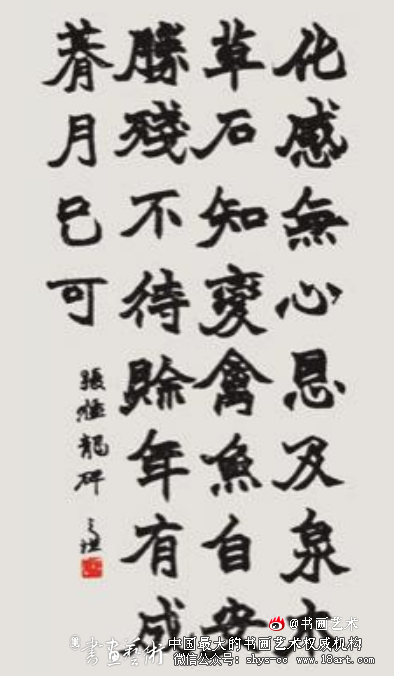 化感無心恩及泉木
草石知變禽魚自安
勝殘不待賒年有成
朞月已可
張猛龍碑
@书画艺术
書畫藝術
中国最大的书画艺术权威机构
微信公众号: shys-cc www.18art.com.